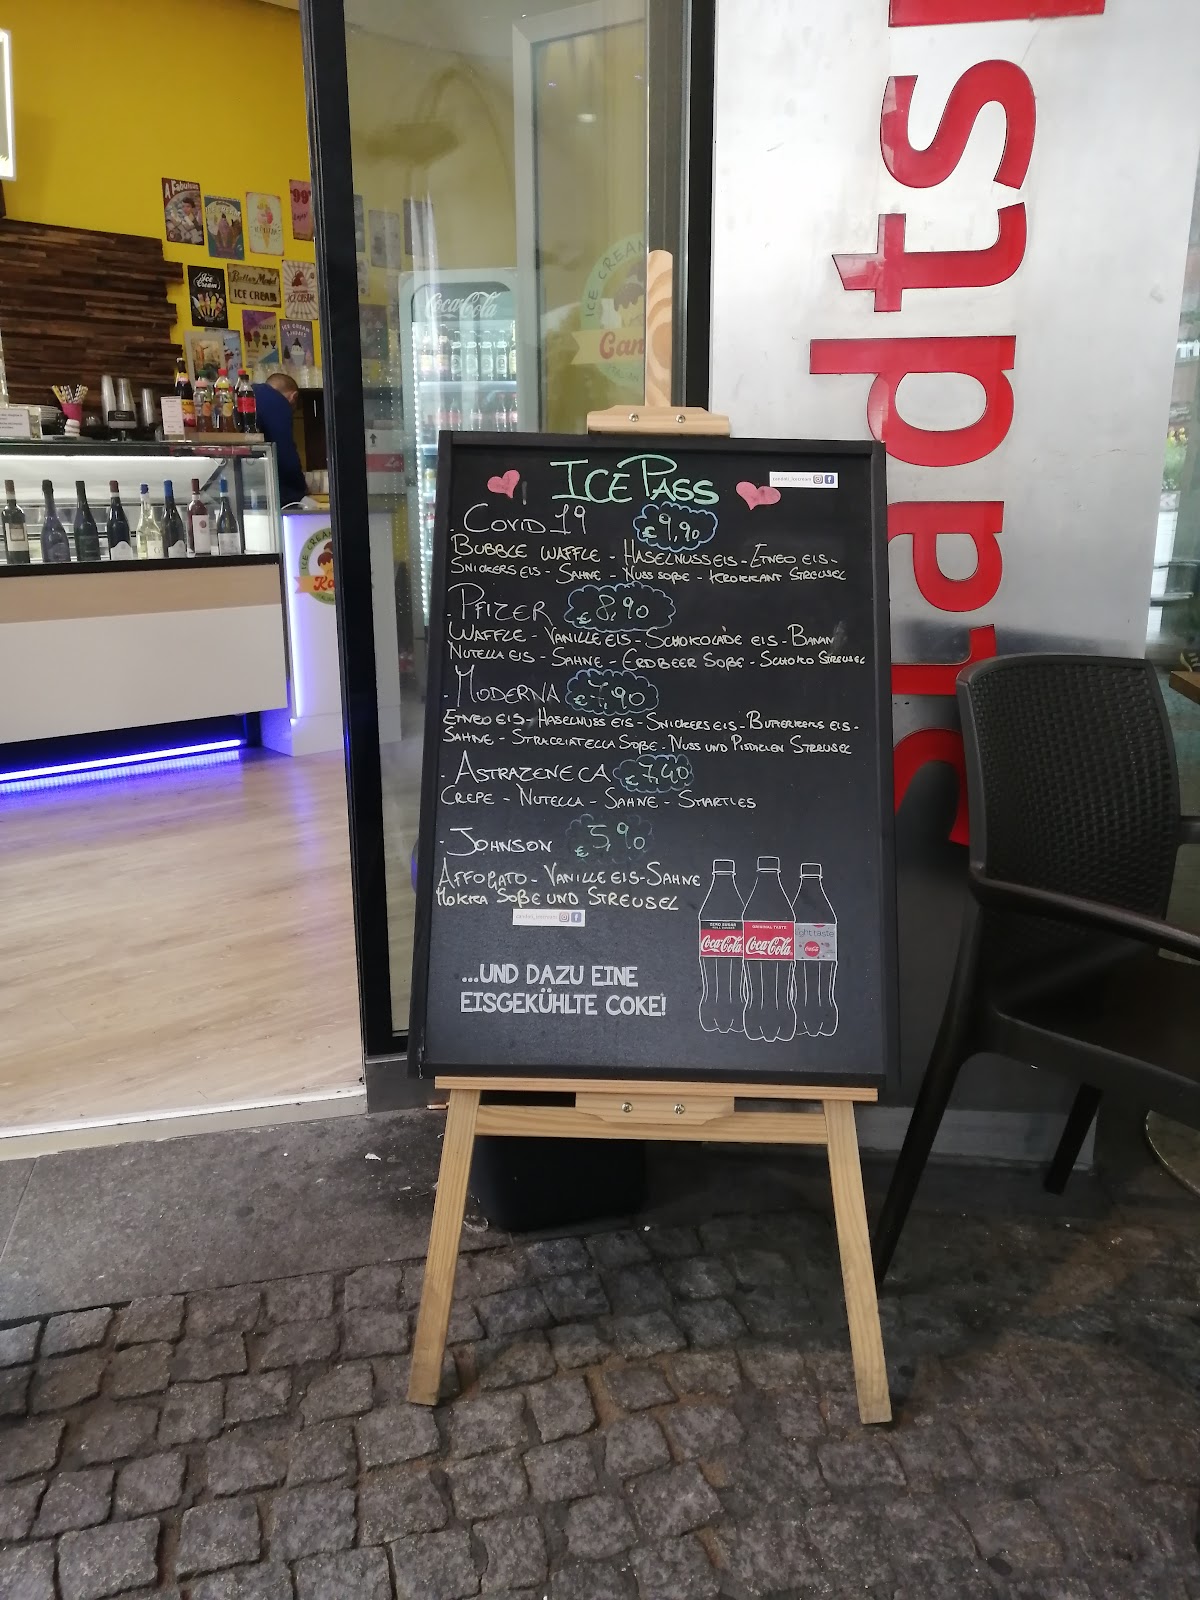 A Fabulous
99
Ice Cream
Better Mood
ICE CREAM
ICE CREAM
ICE CREAM SUNDAES
Coca-Cola
ICE CREAM
Can
ICE CREAM
Ka
stadts
ICE PASS
- COVID 19 € 9,90
BUBBLE WAFFLE - HASELNUSS EIS - ETNEO EIS -
SNICKERS EIS - SAHNE - NUSS SOßE - KROKKANT STREUSEL
- PFIZER € 8,90
WAFFLE - VANILLE EIS - SCHOKOLADE EIS - BANAN
NUTELLA EIS - SAHNE - ERDBEER SOßE - SCHOKO STREUSEL
- MODERNA € 7,90
ETNEO EIS - HASELNUSS EIS - SNICKERS EIS - BUTTERKEKS EIS -
SAHNE - STRACCIATELLA SOßE - NUSS UND PISTAZIEN STREUSEL
- ASTRAZENECA € 7,40
CREPE - NUTELLA - SAHNE - SMARTIES
- JOHNSON € 5,90
AFFOGATO - VANILLE EIS - SAHNE
MOKKA SOßE UND STREUSEL
...UND DAZU EINE
EISGEKÜHLTE COKE!
ZERO SUGAR
Coca-Cola
ORIGINAL TASTE
Coca-Cola
light taste
Coca-Cola